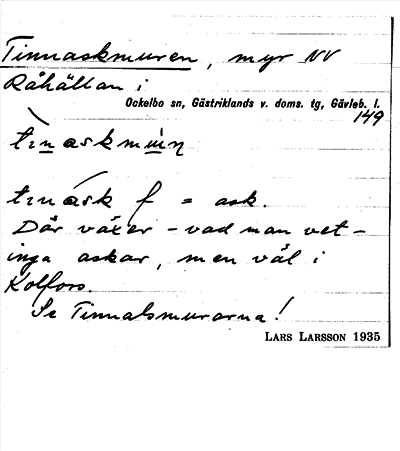 Tinnaskmuren, myr NV
Råhällan i
Ockelbo sn, Gästriklands v. doms. tg, Gävleb. l.
149
tɪnaskmɯ̀n
tɪnask f = ask.
Där växer - vad man vet -
inga askar, men väl i
Kolfors.
Se Tinnalsmurarna!
LARS LARSSON 1935